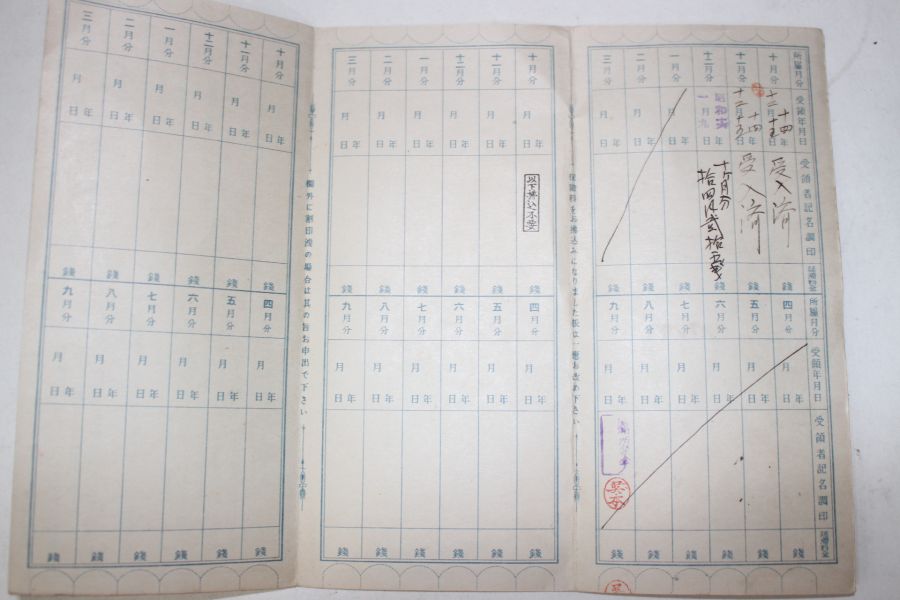 所屬月分
受領年月日
受領者記名調印
延滯料金
十月分
十四年
十二月
十五日
受入済
錢
十一月分
十四年
十二月
十五日
受入済
錢
十二月分
昭和
一月九
十ケ月分
錢
一月分
月
年
日
錢
二月分
月
年
日
錢
三月分
月
年
日
錢
所屬月分
受領年月日
受領者記名調印
延滯料金
四月分
月
年
日
錢
五月分
月
年
日
錢
六月分
月
年
日
錢
七月分
月
年
日
錢
八月分
月
年
日
錢
九月分
月
年
日
錢
保險料をお拂込みになりました祭は一應お改め下さい
十月分
月
年
日
以下拂込不要
錢
十一月分
月
年
日
錢
十二月分
月
年
日
錢
一月分
月
年
日
錢
二月分
月
年
日
錢
三月分
月
年
日
錢
四月分
月
年
日
錢
五月分
月
年
日
錢
六月分
月
年
日
錢
七月分
月
年
日
錢
八月分
月
年
日
錢
九月分
月
年
日
錢
欄外に割印洩の場合は其の旨お申出で下さい
十月分
月
年
日
錢
十一月分
月
年
日
錢
十二月分
月
年
日
錢
一月分
月
年
日
錢
二月分
月
年
日
錢
三月分
月
年
日
錢
四月分
月
年
日
錢
五月分
月
年
日
錢
六月分
月
年
日
錢
七月分
月
年
日
錢
八月分
月
年
日
錢
九月分
月
年
日
錢